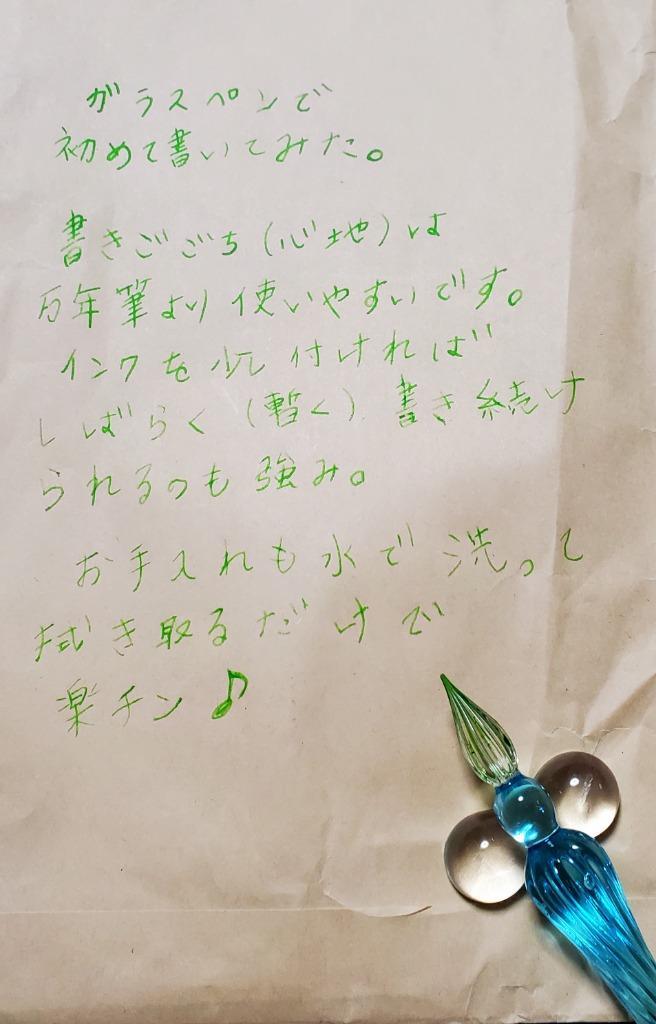 ガラスペンで
初めて書いてみた。
書きごごち(心地)は
万年筆より使いやすいです。
インクを少し付ければ
しばらく(暫く)書き続け
られるのも強み。
お手入れも水で洗って
拭き取るだけで
楽チン♪